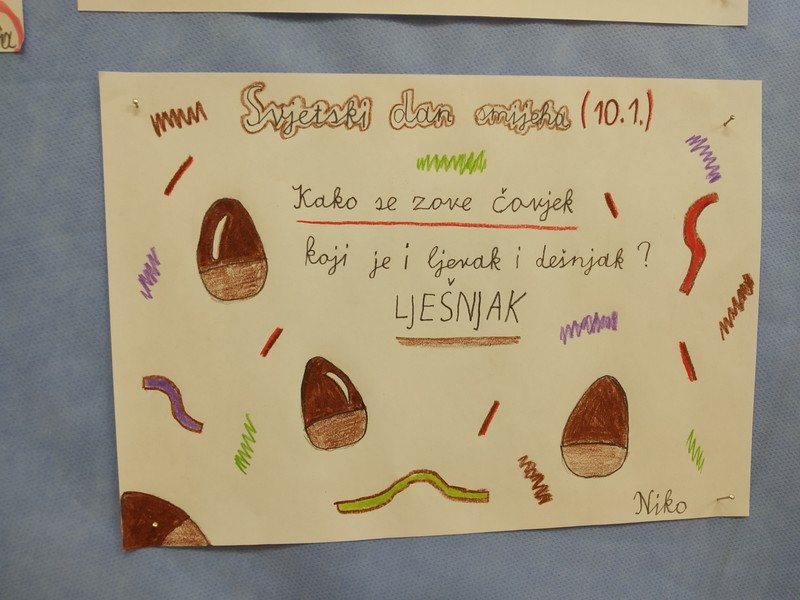 Svjetski dan smijeha (10.1.)
Kako se zove čovjek
koji je i ljevak i dešnjak?
LJEŠNJAK
Niko